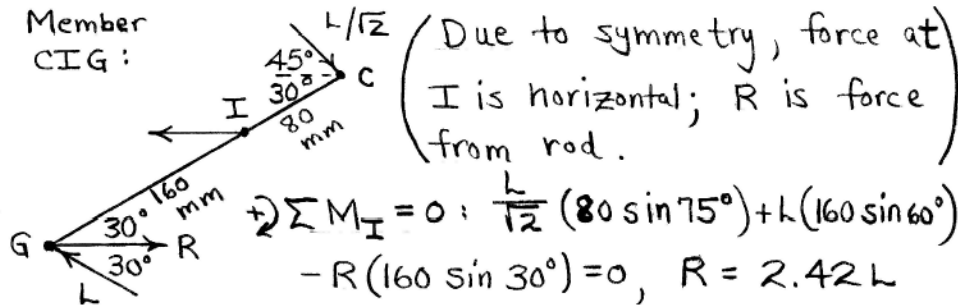 Member
CIG:
L/√2
45°
30°
C
I
80
mm
160
mm
30°
G
R
30°
L
(Due to symmetry, force at
I is horizontal; R is force
from rod.)
+↻ΣM_I = 0: L/√2 (80 sin 75°) + L(160 sin 60°)
- R(160 sin 30°) = 0, R = 2.42L